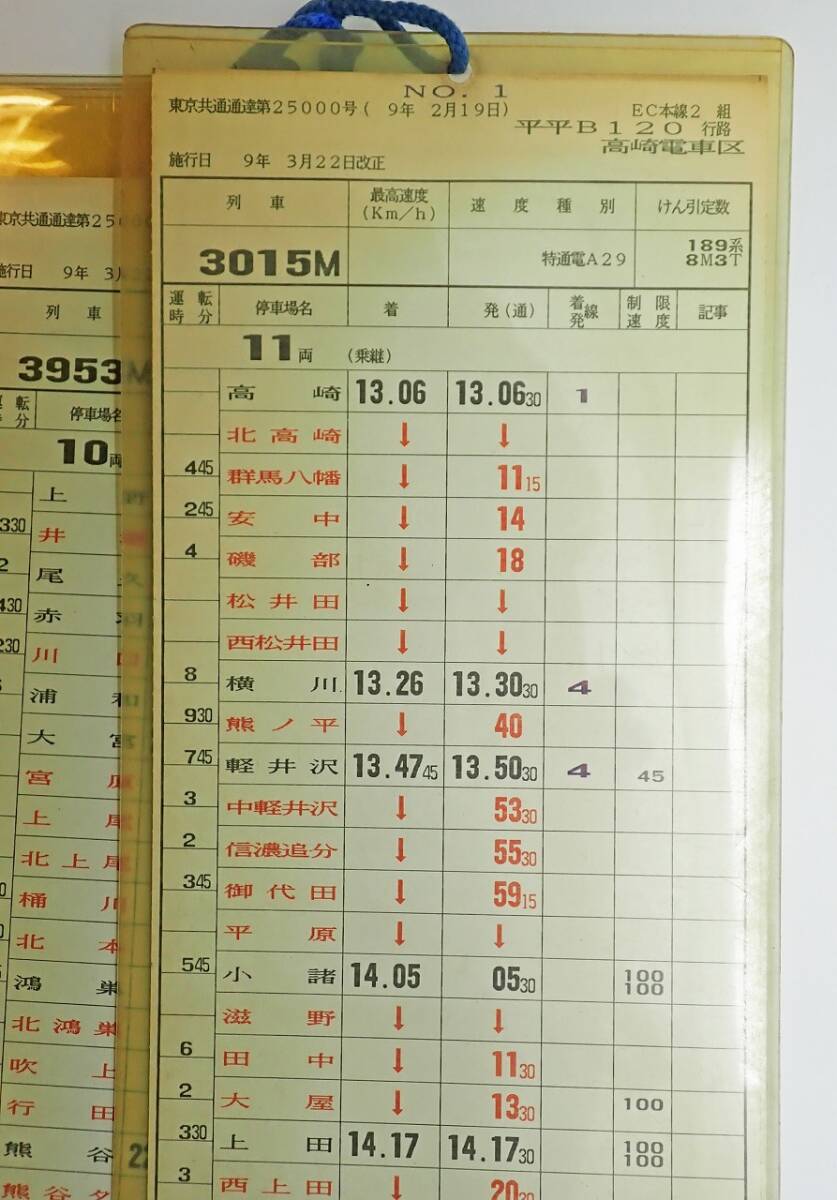 NO. 1
東京共通通達第25000号( 9年 2月19日) EC本線2 組
平平B120 行路
高崎電車区
施行日 9年 3月22日改正
列 車 最高速度(Km/h) 速 度 種 別 けん引定数
3015M 特通電A29 189系 8M3T
運転時分 停車場名 着 発(通) 着発線 制限速度 記事
11両 (乗継)
高 崎 13.06 13.0630 1
北高崎 ↓ ↓
445 群馬八幡 ↓ 1115
245 安 中 ↓ 14
4 磯 部 ↓ 18
松井田 ↓ ↓
西松井田 ↓ ↓
8 横 川 13.26 13.3030 4
930 熊ノ平 ↓ 40
745 軽井沢 13.4745 13.5030 4 45
3 中軽井沢 ↓ 5330
2 信濃追分 ↓ 5530
345 御代田 ↓ 5915
平 原 ↓ ↓
545 小 諸 14.05 0530 100 100
滋 野 ↓ ↓
6 田 中 ↓ 1130
2 大 屋 ↓ 1330 100
330 上 田 14.17 14.1730 100 100
3 西上田 ↓ 2030
東京共通通達第250
施行日 9年 3月
列 車
3953M
運転時分 停車場名
10両
上 野
井
330 尾 久
2 赤 羽
430 川 口
230 浦 和
大 宮
宮 原
上 尾
北上尾
桶 川
北 本
鴻 巣
北鴻巣
吹 上
行 田
熊 谷 22
熊谷